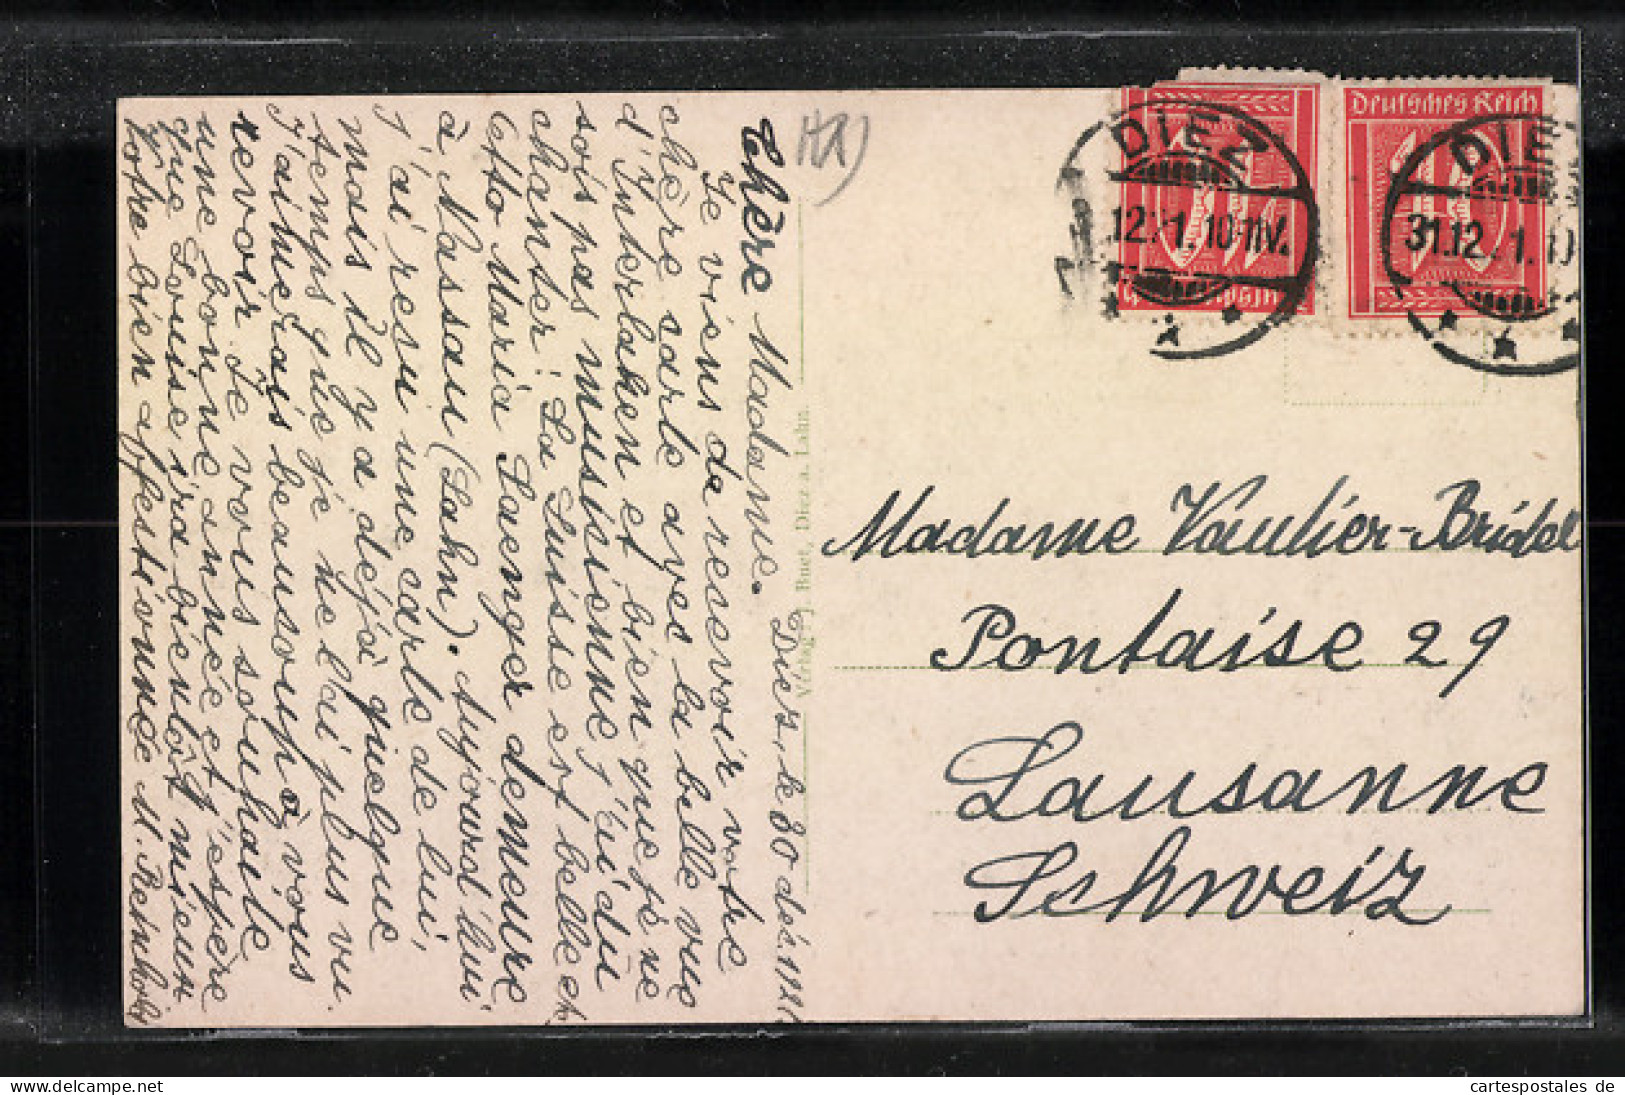 Diez, le 30 déc. 1921
Chère Madame.
Je viens de recevoir votre
chère carte avec la belle vue
d'Interlaken et bien que je ne
sois pas musicienne j'ai dû
chanter: La Suisse est belle etc
Otto Maria Saenger demeure
à Nassau (Lahn). Aujourd'hui
j'ai resu une carte de lui,
mais il y a déjà quelque
temps que je ne l'ai plus vu.
J'aimerais beaucoup à vous
revoir. Je vous souhaite
une bonne année et j'espère
que Louise ira bientôt mieux
Votre bien affectionnée M.
Verlag J. Buet, Diez a. Lahn.
Deutsches Reich
DIEZ
12. 1. 10-11V.
DIEZ
31.12. 1. 10
Madame Vaulier-Bridel
Pontaise 29
Lausanne
Schweiz
cartespostales de